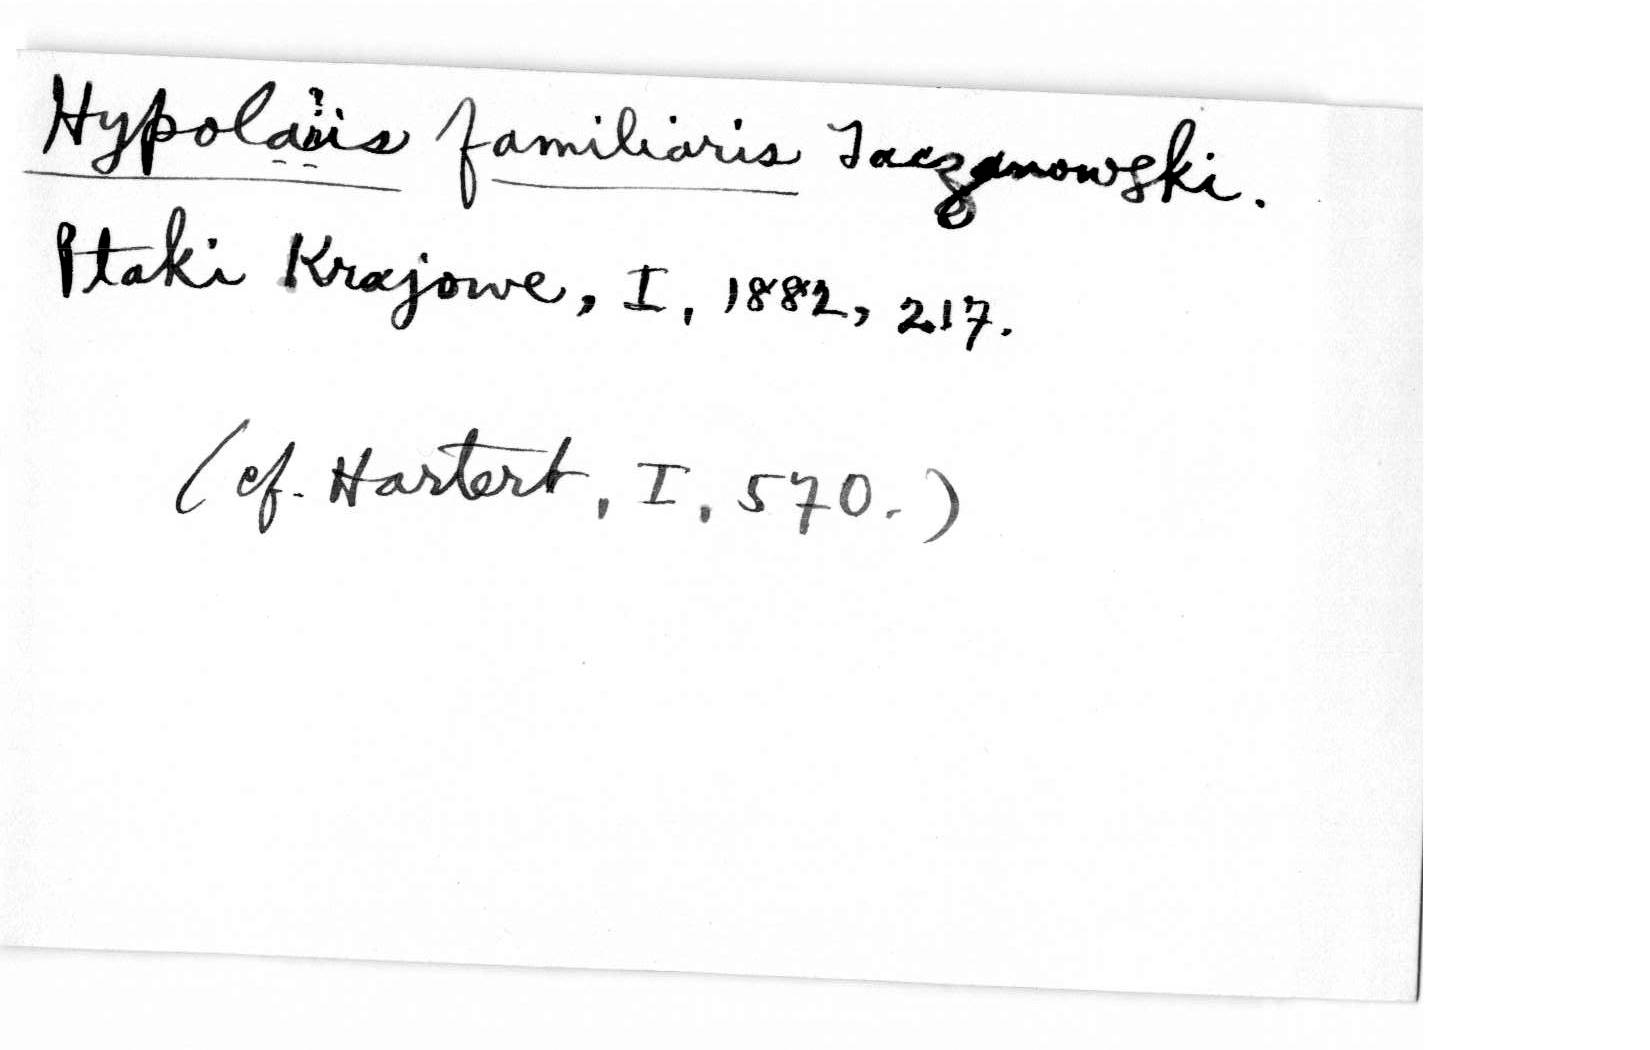 Hypolaiis familiaris Taczanowski.
Ptaki Krajowe, I, 1882, 217.
(cf. Hartert, I, 570.)